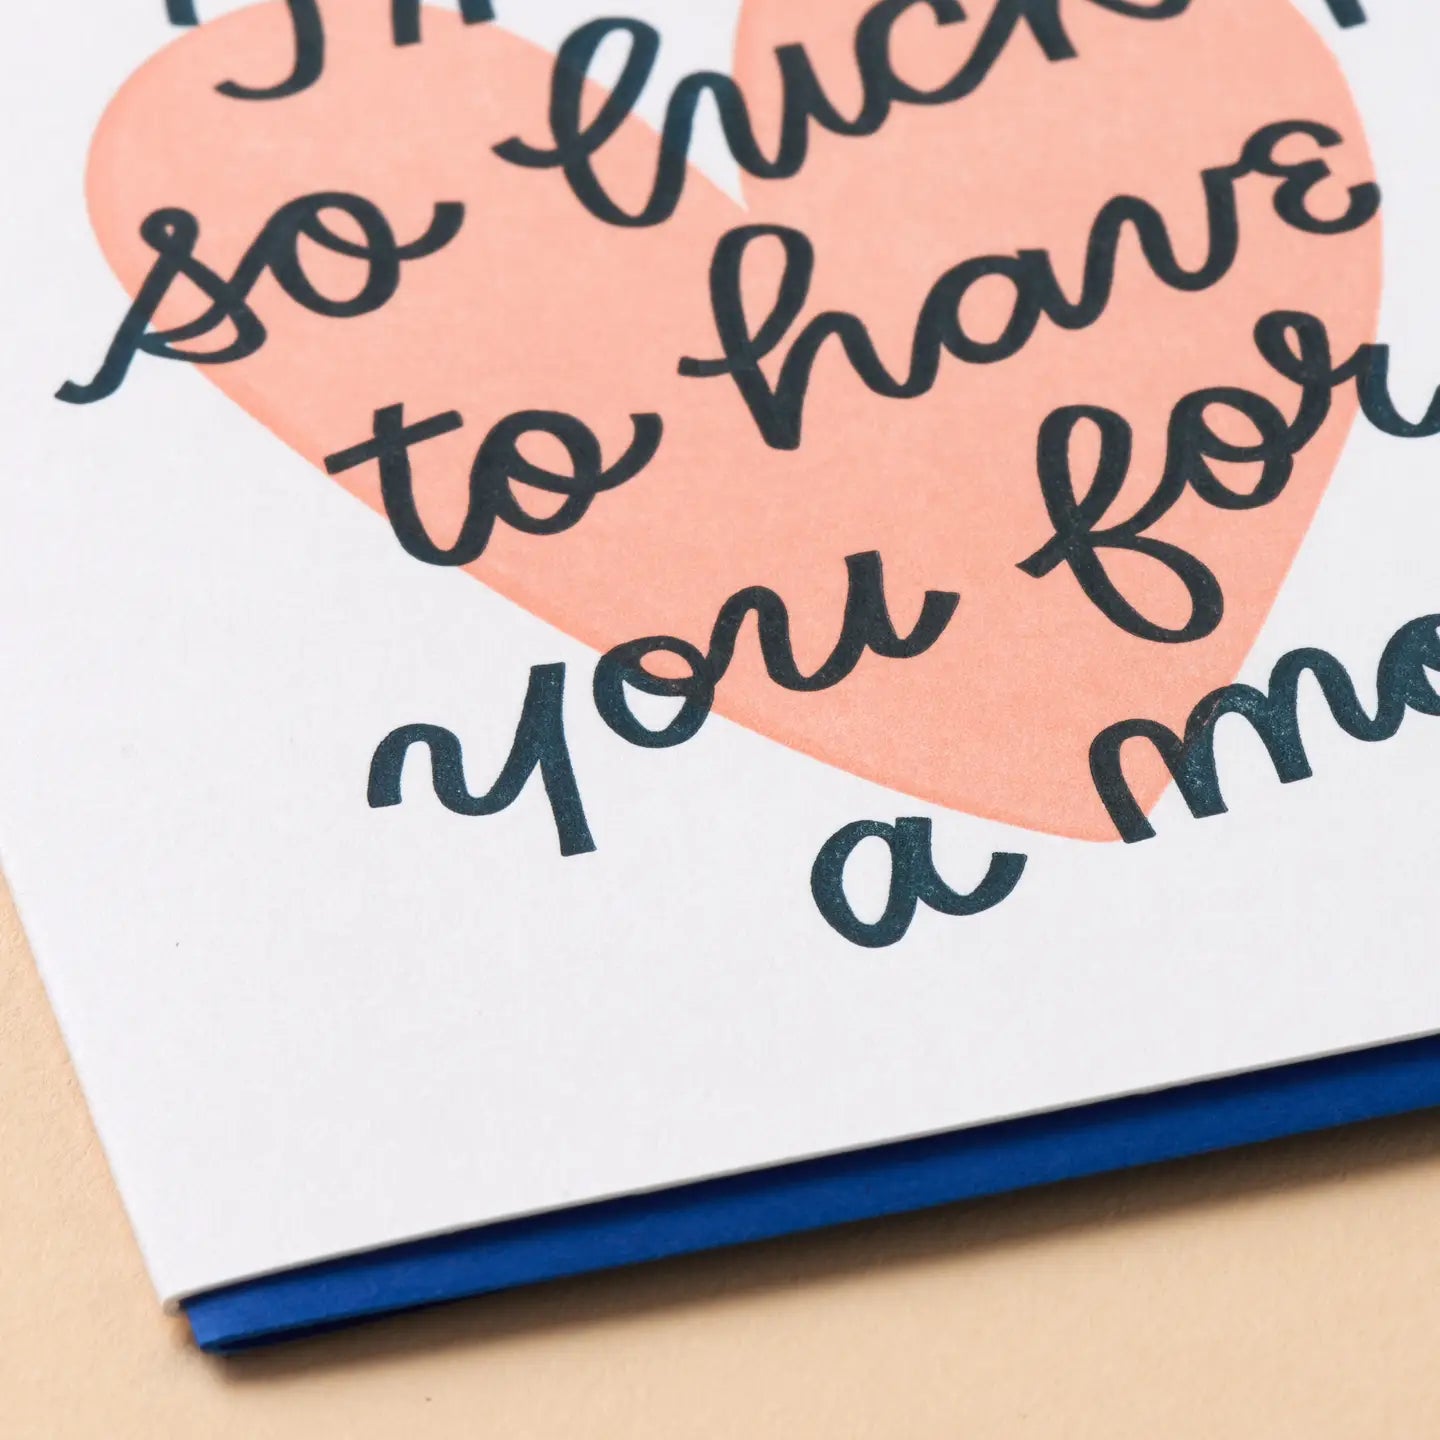 so luck
to have
you for
a mo